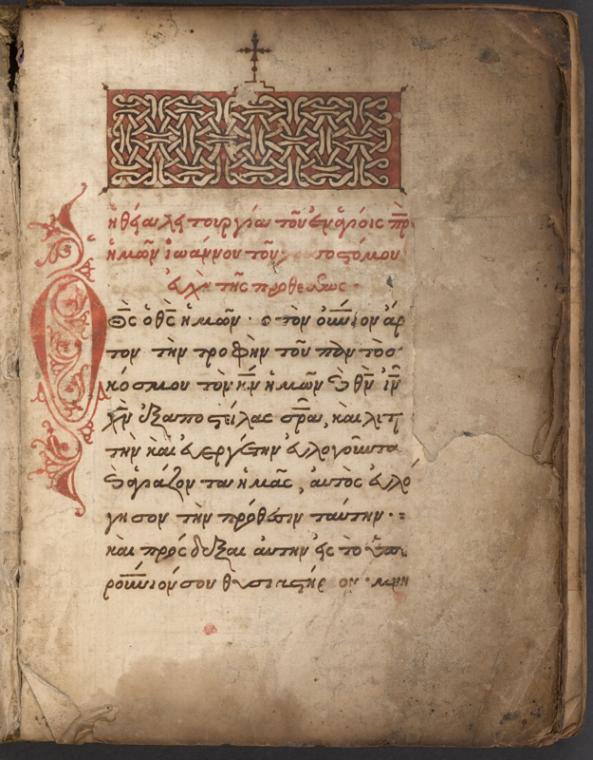 ἡ θεία λειτουργία τοῦ ἐν ἁγίοις π̅ρ̅
ἡμῶν ἰωάννου τοῦ χρυσοστόμου
εὐχὴ τῆς προθέσεως·
Θ̅ς̅ ὁ θ̅ς̅ ἡμῶν· ὁ τὸν οὐ̅νιον ἄρ
τον τὴν τροφὴν τοῦ παντὸς
κόσμου τὸν κ̅ν̅ ἡμῶν ϗ θ̅ν̅ ι̅ν̅
χ̅ν̅ ἐξαποστείλας σ̅ρ̅α̅, καὶ λυτρω
τὴν καὶ εὐεργέτην εὐλογοῦντα
ϗ ἁγιάζοντα ἡμᾶς, αὐτὸς εὐλό
γησον τὴν πρόθεσιν ταύτην·
καὶ πρόσδεξαι αὐτὴν εἰς τὸ ὑπε
ρου̅νιόν σου θυσιαστήριον· μνη